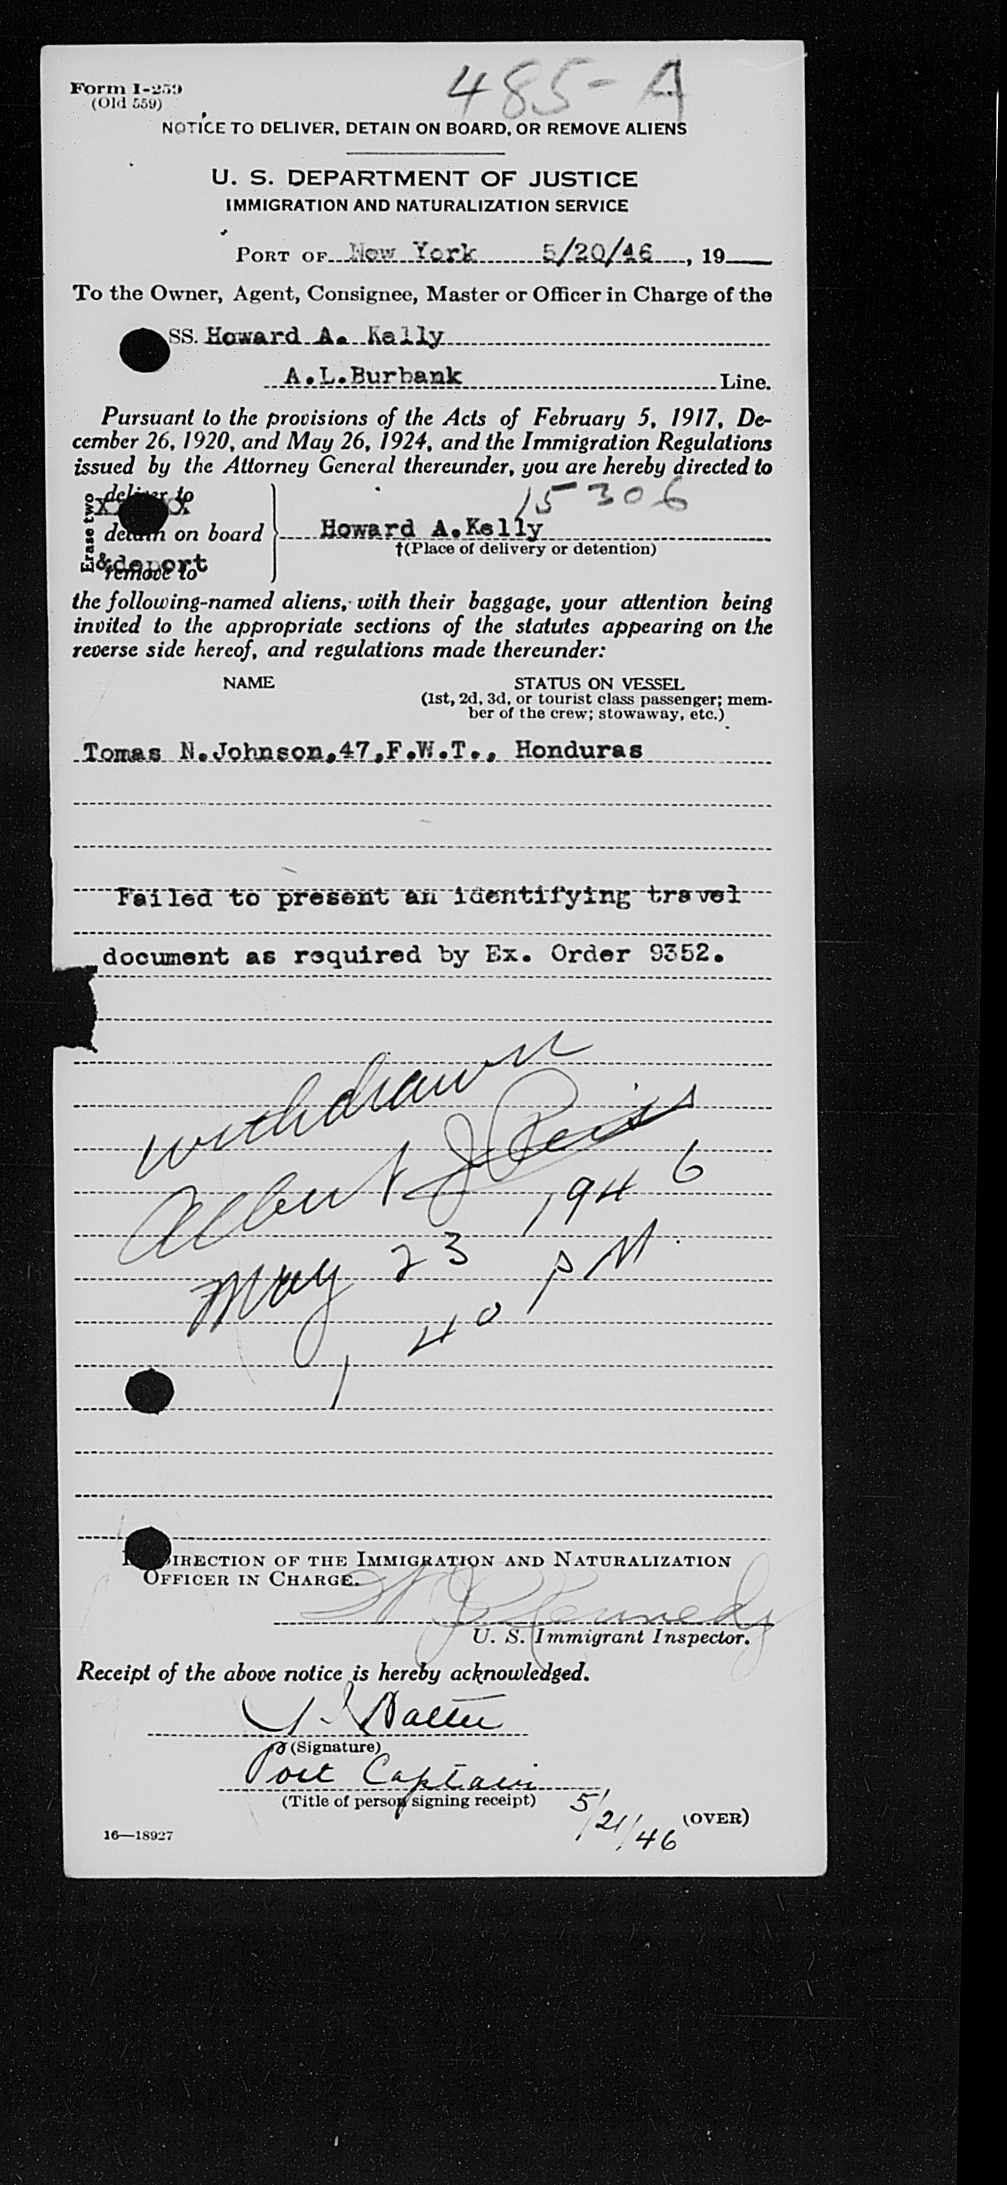 Form I-259
(Old 559)
485-A
NOTICE TO DELIVER, DETAIN ON BOARD, OR REMOVE ALIENS
U. S. DEPARTMENT OF JUSTICE
IMMIGRATION AND NATURALIZATION SERVICE
PORT OF New York 5/20/46, 19
To the Owner, Agent, Consignee, Master or Officer in Charge of the
SS. Howard A. Kelly
A.L.Burbank Line.
Pursuant to the provisions of the Acts of February 5, 1917, De-
cember 26, 1920, and May 26, 1924, and the Immigration Regulations
issued by the Attorney General thereunder, you are hereby directed to
15306
Erase two
deliver to
detain on board Howard A.Kelly
†(Place of delivery or detention)
&deport
remove to
the following-named aliens, with their baggage, your attention being
invited to the appropriate sections of the statutes appearing on the
reverse side hereof, and regulations made thereunder:
NAME STATUS ON VESSEL
(1st, 2d, 3d, or tourist class passenger; mem-
ber of the crew; stowaway, etc.)
Tomas N.Johnson,47,F.W.T., Honduras
Failed to present an identifying travel
document as required by Ex. Order 9352.
withdrawn
Albert J Reiss
May 23 1946
1 40 PM.
DIRECTION OF THE IMMIGRATION AND NATURALIZATION
OFFICER IN CHARGE.
W J Kennedy
U. S. Immigrant Inspector.
Receipt of the above notice is hereby acknowledged.
(Signature)
Port Captain
(Title of person signing receipt)
5/21/46
(OVER)
16—18927